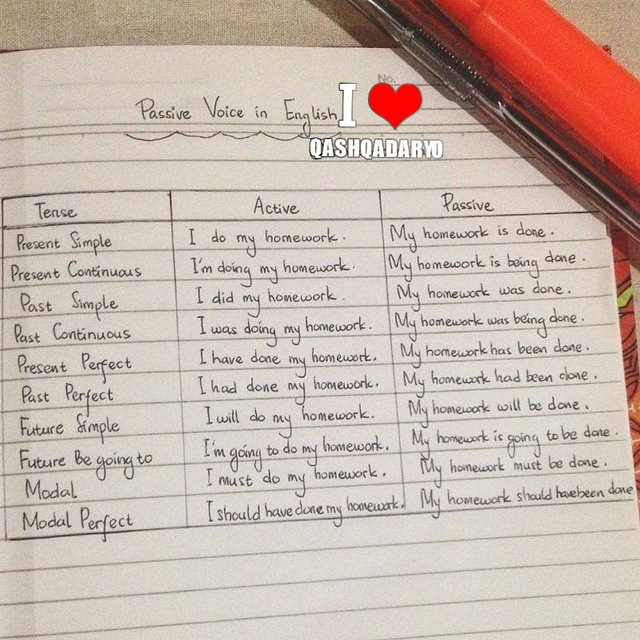 No.
Passive Voice in English
I ❤
QASHQADARYO
Tense Active Passive
Present Simple I do my homework. My homework is done.
Present Continuous I'm doing my homework. My homework is being done.
Past Simple I did my homework. My homework was done.
Past Continuous I was doing my homework. My homework was being done.
Present Perfect I have done my homework. My homework has been done.
Past Perfect I had done my homework. My homework had been done.
Future Simple I will do my homework. My homework will be done.
Future Be going to I'm going to do my homework. My homework is going to be done.
Modal I must do my homework. My homework must be done.
Modal Perfect I should have done my homework. My homework should have been done